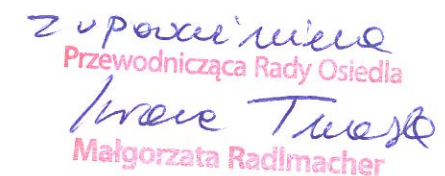 z upoważnienia
Przewodnicząca Rady Osiedla
Małgorzata Radlmacher